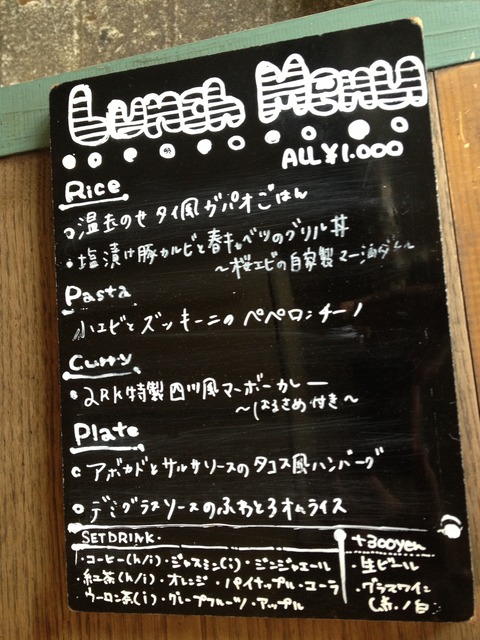 Lunch Menu
ALL ¥1.000
Rice
温玉のせ タイ風 ガパオごはん
塩漬け豚カルビと春キャベツのグリル丼
〜桜エビの自家製マー油ダレ〜
Pasta
小エビと ズッキーニの ペペロンチーノ
Curry
2RK特製 四川風 マーボーカレー
〜はるさめ付き〜
Plate
アボカドとサルサソースのタコス風ハンバーグ
デミグラスソースのふわとろオムライス
SET DRINK.
・コーヒー(h/i)・ジャスミン(i)・ジンジャエール
紅茶(h/i)・オレンジ・パイナップル・コーラ
ウーロン茶(i)・グレープフルーツ・アップル
+300yen
・生ビール
・グラスワイン
(赤/白)